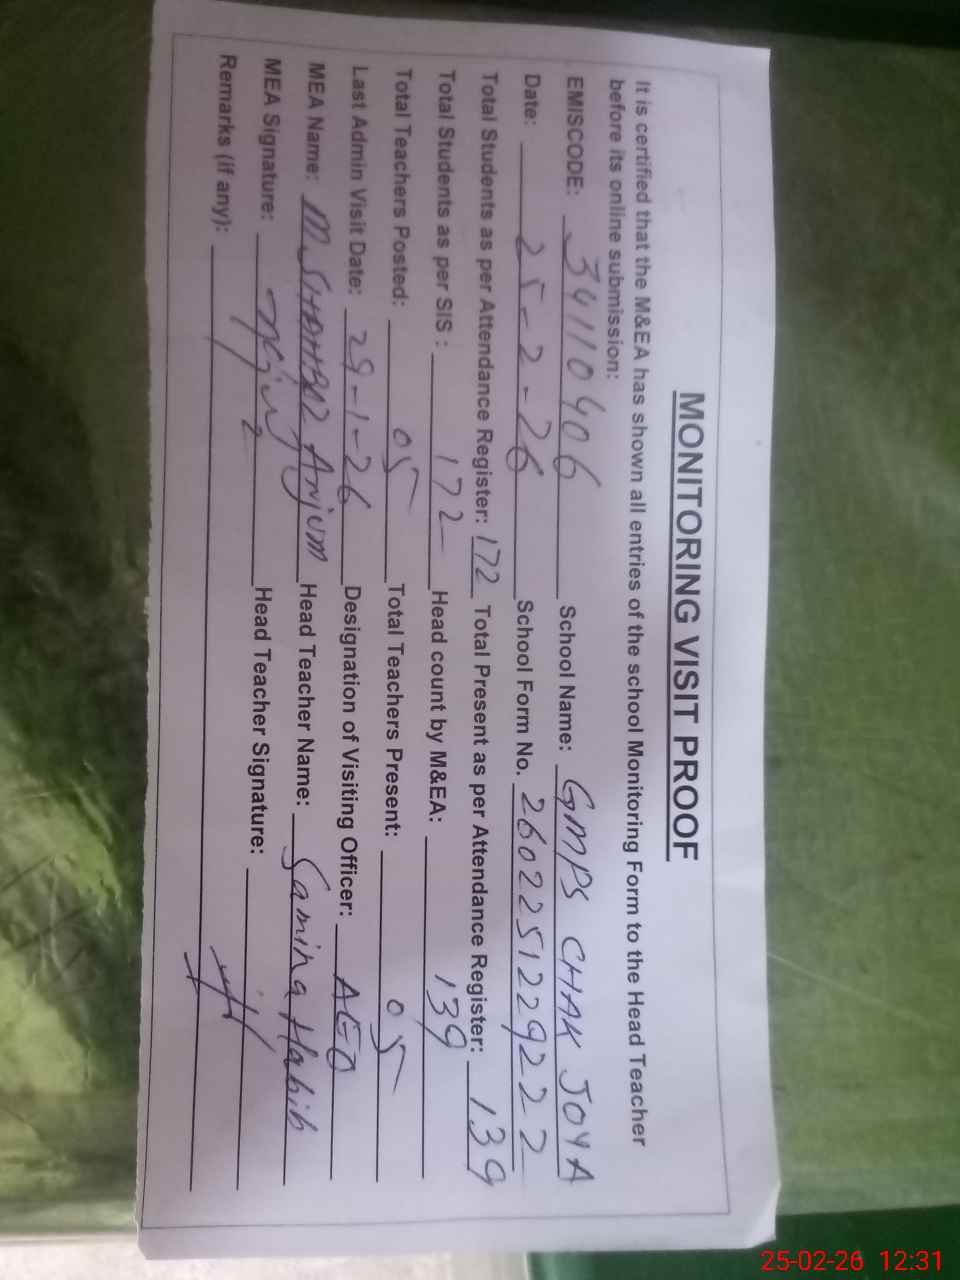 MONITORING VISIT PROOF
It is certified that the M&EA has shown all entries of the school Monitoring Form to the Head Teacher
before its online submission:
EMISCODE: 34110406 School Name: GMPS CHAK JOYA
Date: 25-2-26 School Form No. 2602251229222
Total Students as per Attendance Register: 172 Total Present as per Attendance Register: 139
Total Students as per SIS: 172 Head count by M&EA: 139
Total Teachers Posted: 05 Total Teachers Present: 05
Last Admin Visit Date: 29-1-26 Designation of Visiting Officer: AEO
MEA Name: M. Anjum Head Teacher Name: Samina Habib
MEA Signature: Head Teacher Signature:
Remarks (if any):
25-02-26 12:31